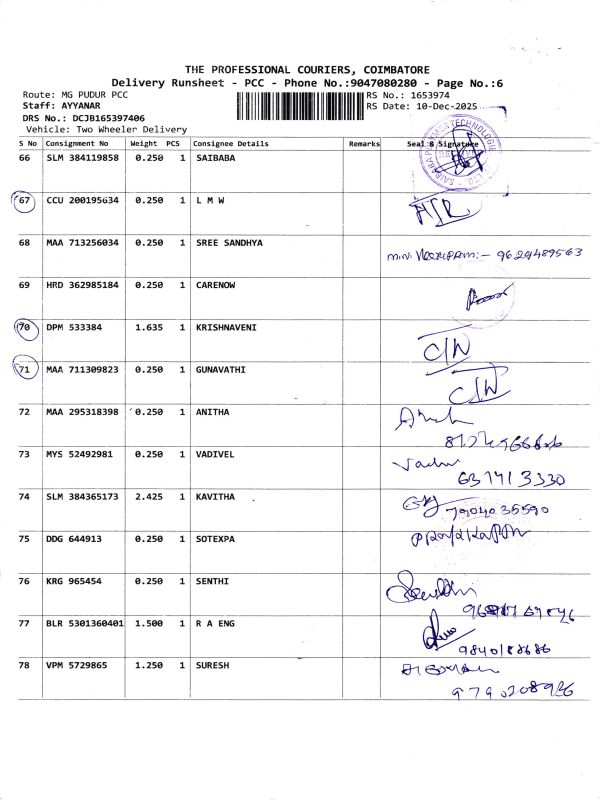 THE PROFESSIONAL COURIERS, COIMBATORE
Delivery Runsheet - PCC - Phone No.:9047080280 - Page No.:6
Route: MG PUDUR PCC RS No.: 1653974
Staff: AYYANAR RS Date: 10-Dec-2025
DRS No.: DCJB165397406
Vehicle: Two Wheeler Delivery
S No Consignment No Weight PCS Consignee Details Remarks Seal & Signature
66 SLM 384119858 0.250 1 SAIBABA
67 CCU 200195634 0.250 1 L M W
68 MAA 713256034 0.250 1 SREE SANDHYA
9629489563
69 HRD 362985184 0.250 1 CARENOW
70 DPM 533384 1.635 1 KRISHNAVENI
71 MAA 711309823 0.250 1 GUNAVATHI
72 MAA 295318398 0.250 1 ANITHA
73 MYS 52492981 0.250 1 VADIVEL
6371413330
74 SLM 384365173 2.425 1 KAVITHA
7904035590
75 DDG 644913 0.250 1 SOTEXPA
76 KRG 965454 0.250 1 SENTHI
77 BLR 5301360401 1.500 1 R A ENG
78 VPM 5729865 1.250 1 SURESH